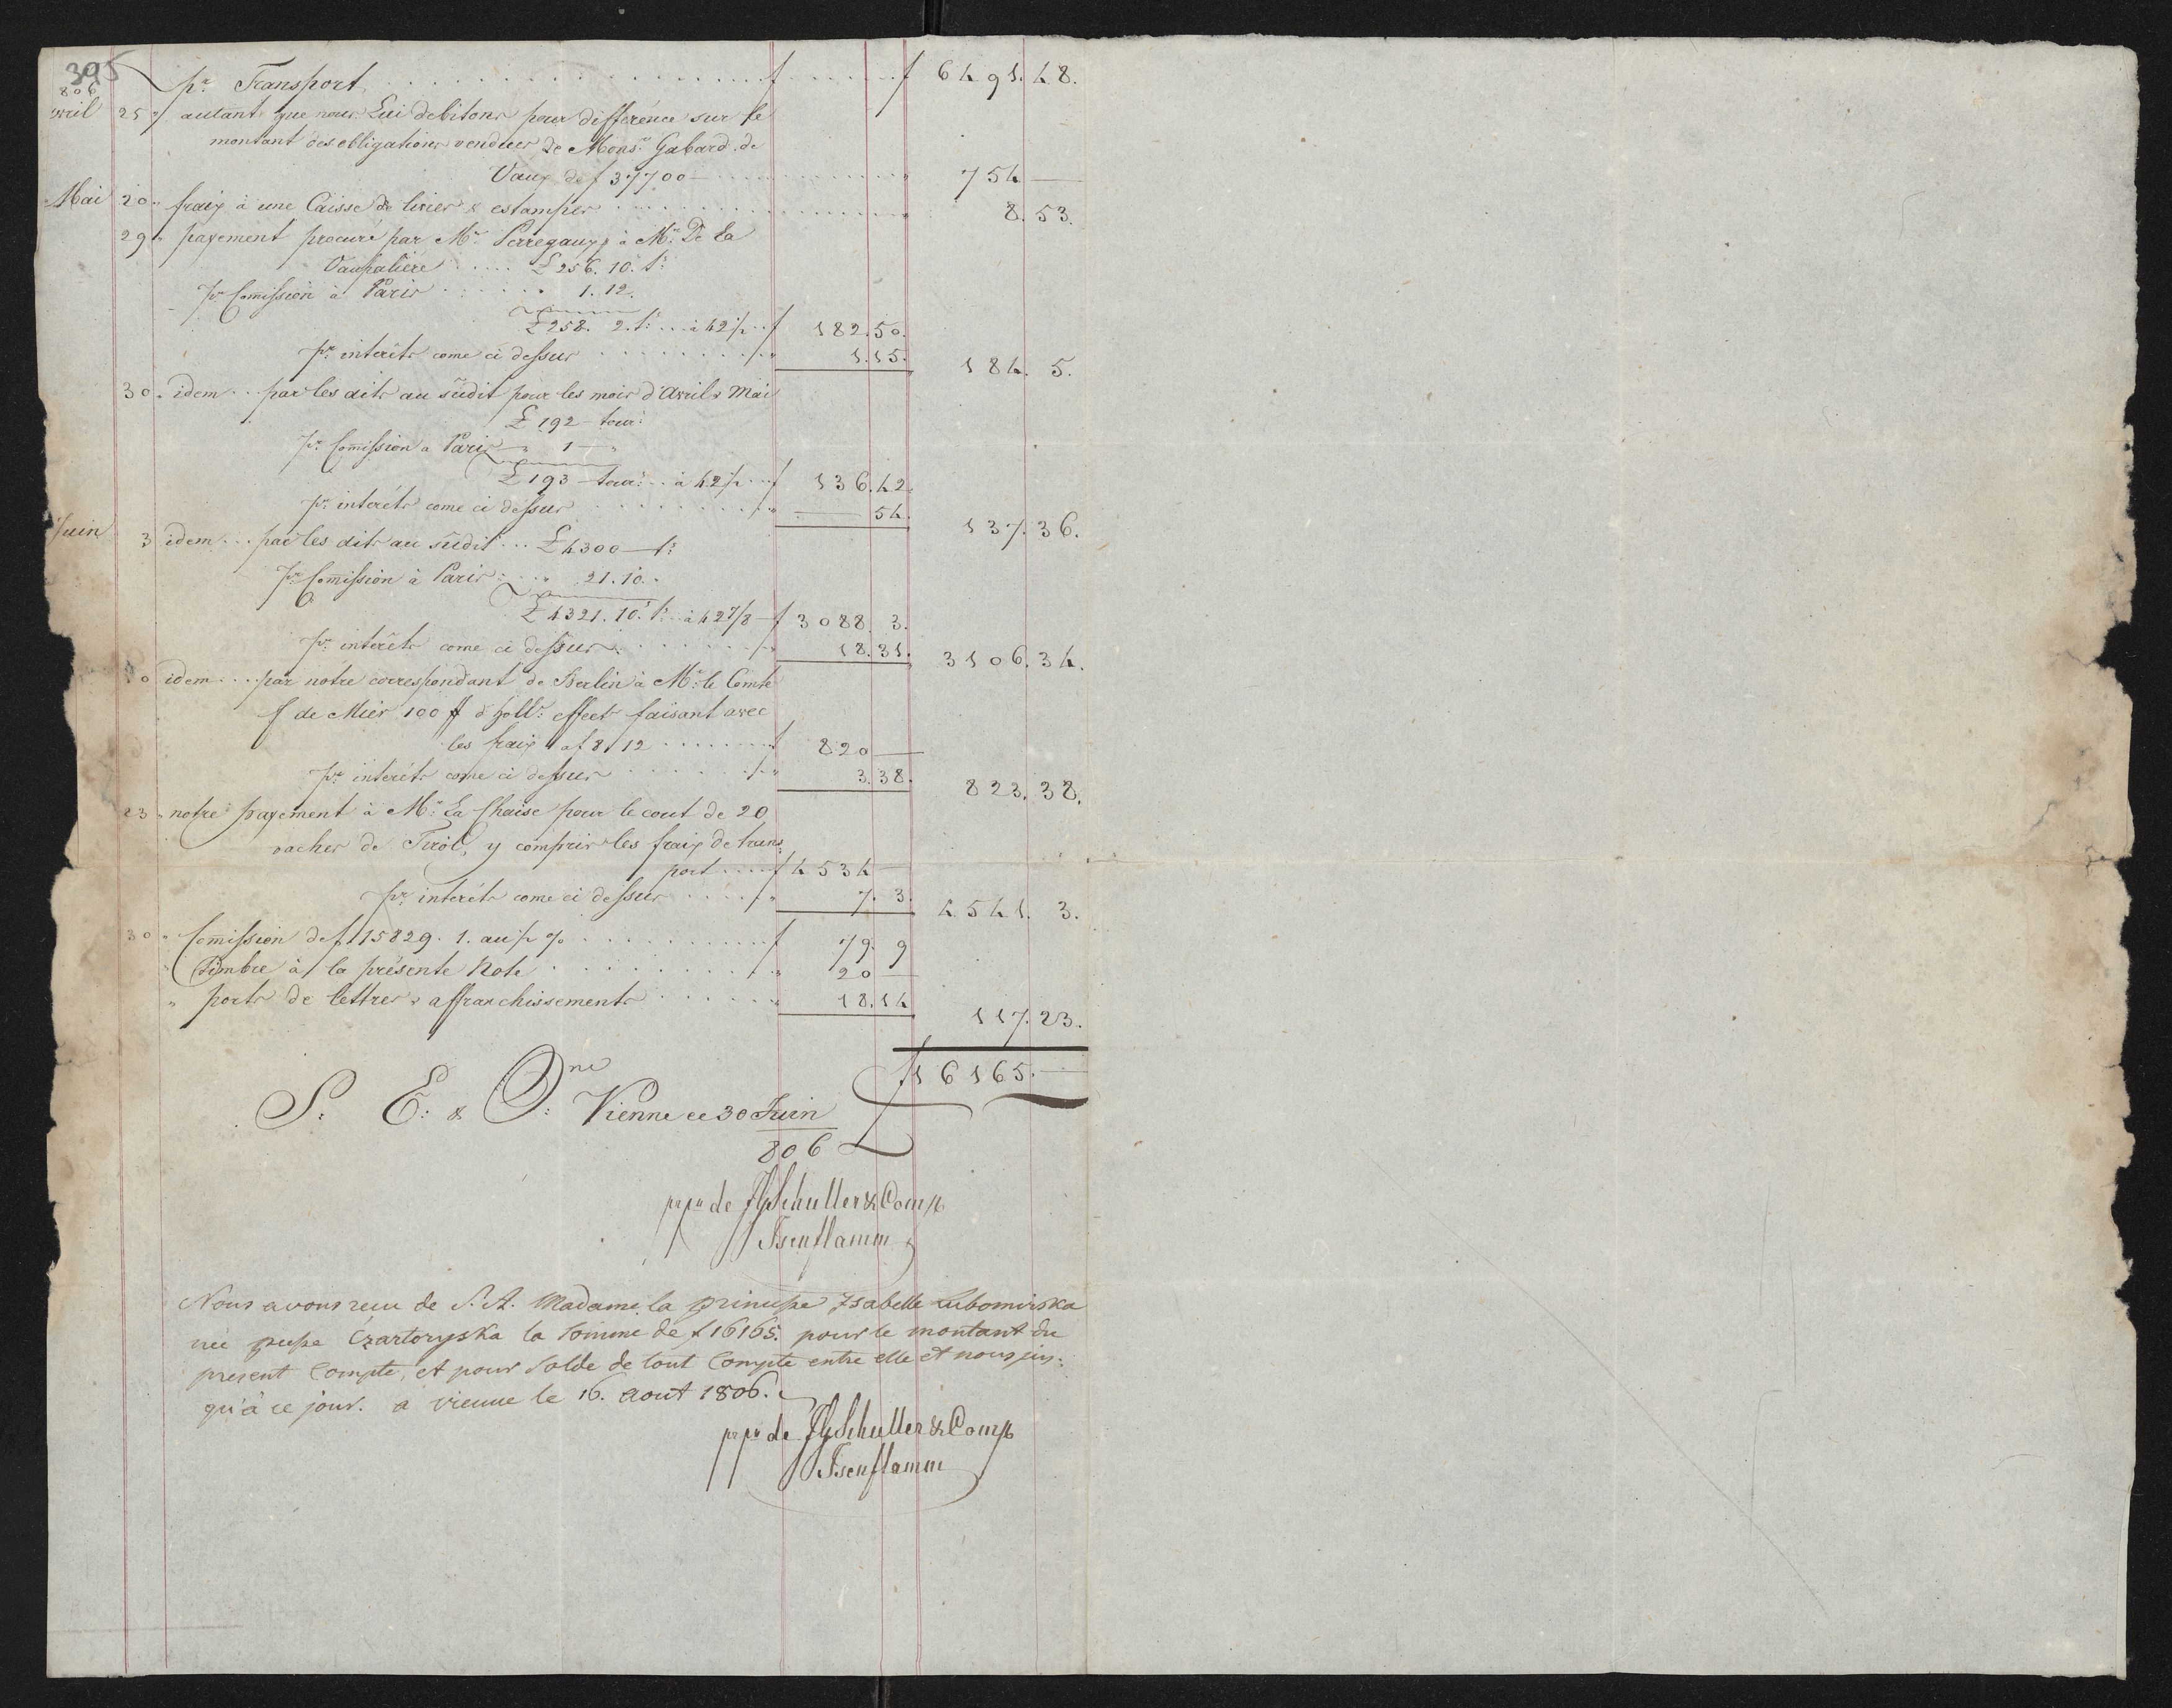 395
806
avril 25 " autant que nous Lui debitons pour difference sur le
pr. Transport . . . . f . . . . f 6491. 48.
montant des obligations vendues de Monsr. Gabard de
Vaux de f 37700 — . . . . 754 —
Mai 20 " fraix à une Caisse de livres & estampes . . . . 8. 53.
29 " payement procuré par Mr. Perregaux à Mr. De La
Vaupaliere . . . . £ 256. 10. t:
pr Comission à Paris . . . . 1. 12.
£ 258. 2. t: . . . à 42 ½ . . f 182. 50.
pr. interêts come ci dessus . . . . " 1. 15. 184. 5.
30 " idem . . . par les dits au sudit pour les mois d'Avril & Mai
£ 192 — tour:
pr. Comission a Paris " 1 — "
£ 193 — tour: . . à 42 ½ . . f 136. 42.
pr. interêts come ci dessus . . . . " — 54. 137. 36.
Juin 3 idem . . . par les dits au sudit . . . £ 4300 — t:
pr Comission à Paris . . " 21. 10. "
£ 4321. 10. t: . . à 42 7/8 — f 3088. 3.
pr. interêts come ci dessus . . . . " 18. 31. 3106. 34.
10 idem . . . . par notre correspondant de Berlin à Mr. le Comte
f de Mier 100 # d'holl: effect: faisant avec
les fraix à f 8. 12 . . . . f 820 —
pr. interêts come ci dessus . . . . " 3. 38. 823. 38.
23 " notre payement à Mr. La Chaise pour le cout de 20
vaches de Tirol, y compris les fraix de trans-
port . . . . f 4534 —
pr. interêts come ci dessus . . . . " 7. 3. 4541. 3.
30 " Comission de f 15829. 1. au ½ % . . . . f 79. 9
" Timbre à la présente Note . . . . " 20 —
" ports de lettres & affranchissements . . . . " 18. 14 117. 23.
f 16165. —
S. E. & O:ne Vienne ce 30 Juin
806
pr pn de JGSchuller & Comp
Isenflamm
Nous avons reçu de S. A. Madame la princesse Isabelle Lubomirska
née psse Czartoryska la Somme de f 16165. pour le montant du
present Compte, et pour Solde de tout Compte entre elle et nous jus-
qu'à ce jour. a vienne le 16. aout 1806.
pr pn de JGSchuller & Comp
Isenflamm